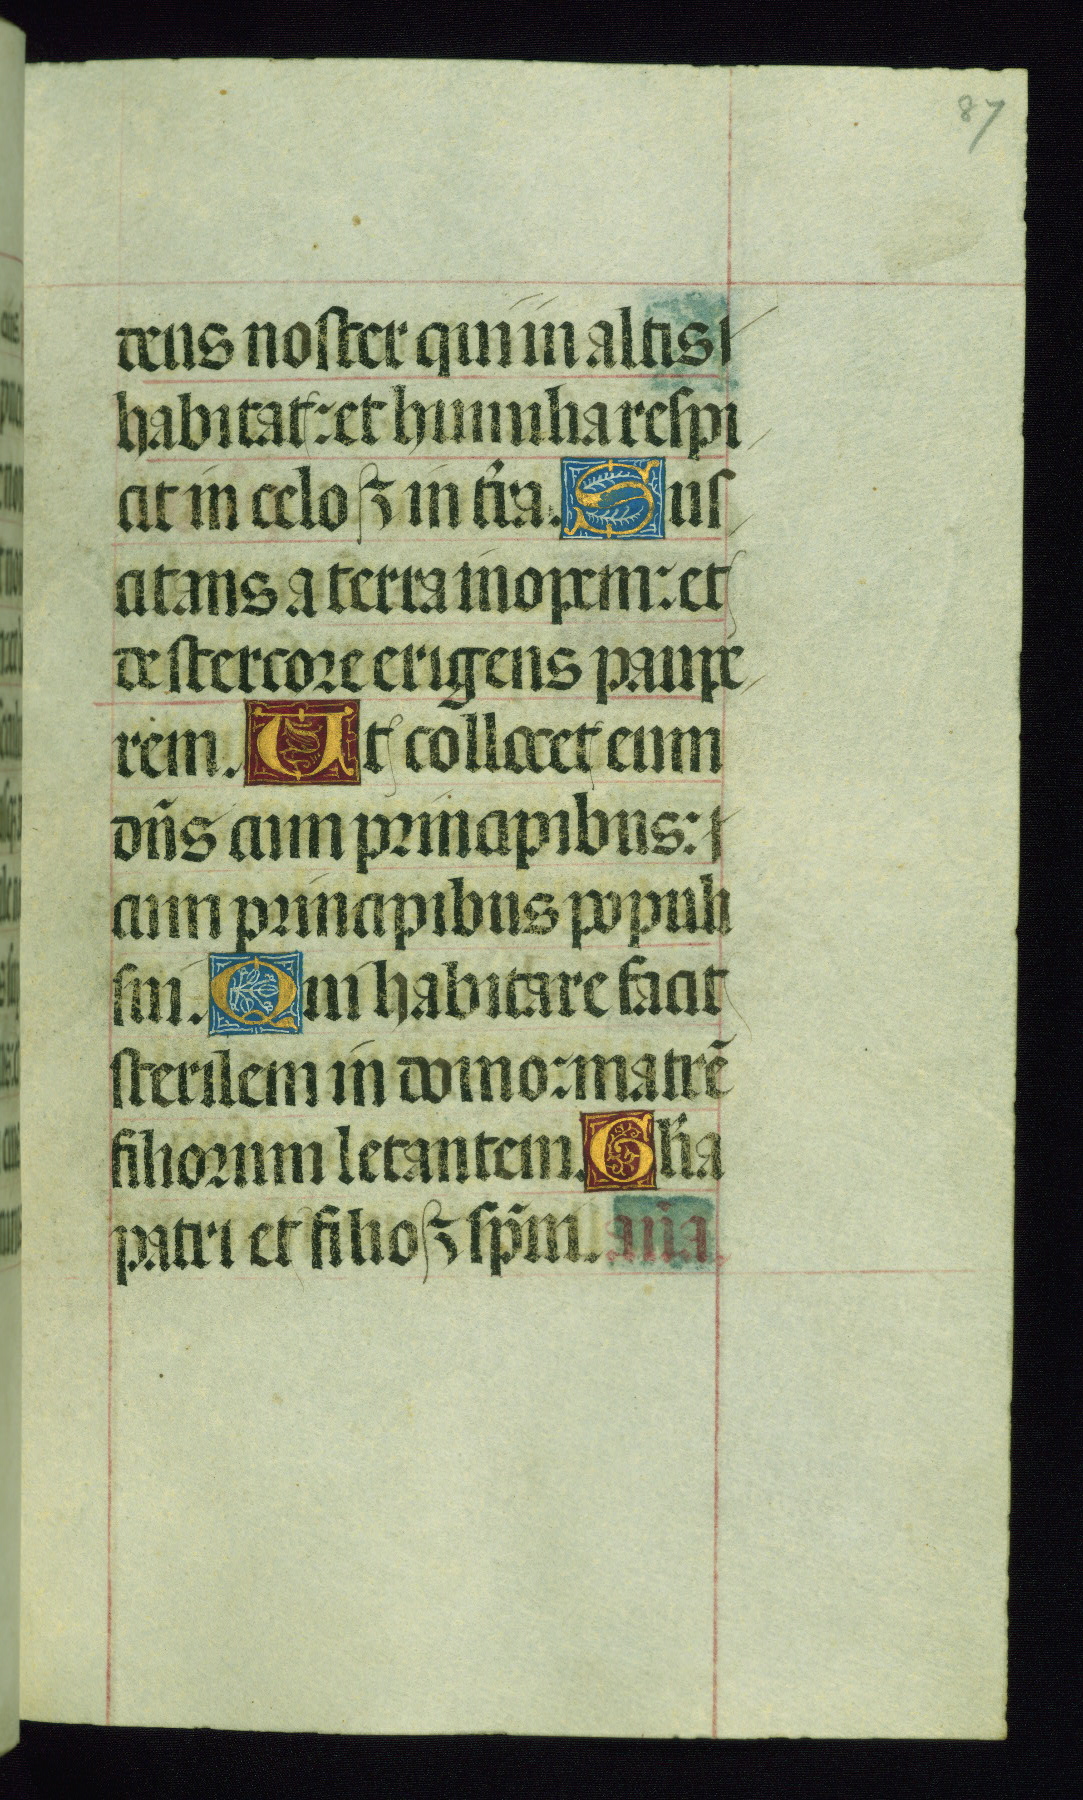 87
deus noster qui in altis
habitat: et humilia respi
cit in celo ⁊ in tr̃a. Sus
citans a terra inopem: et
de stercore erigens paupe
rem. Ut collocet eum
dñs cum principibus:
cum principibus populi
sui. Qui habitare facit
sterilem in domo: matrẽ
filiorum letantem. Glĩa
patri et filio ⁊ sp̃m. aña.